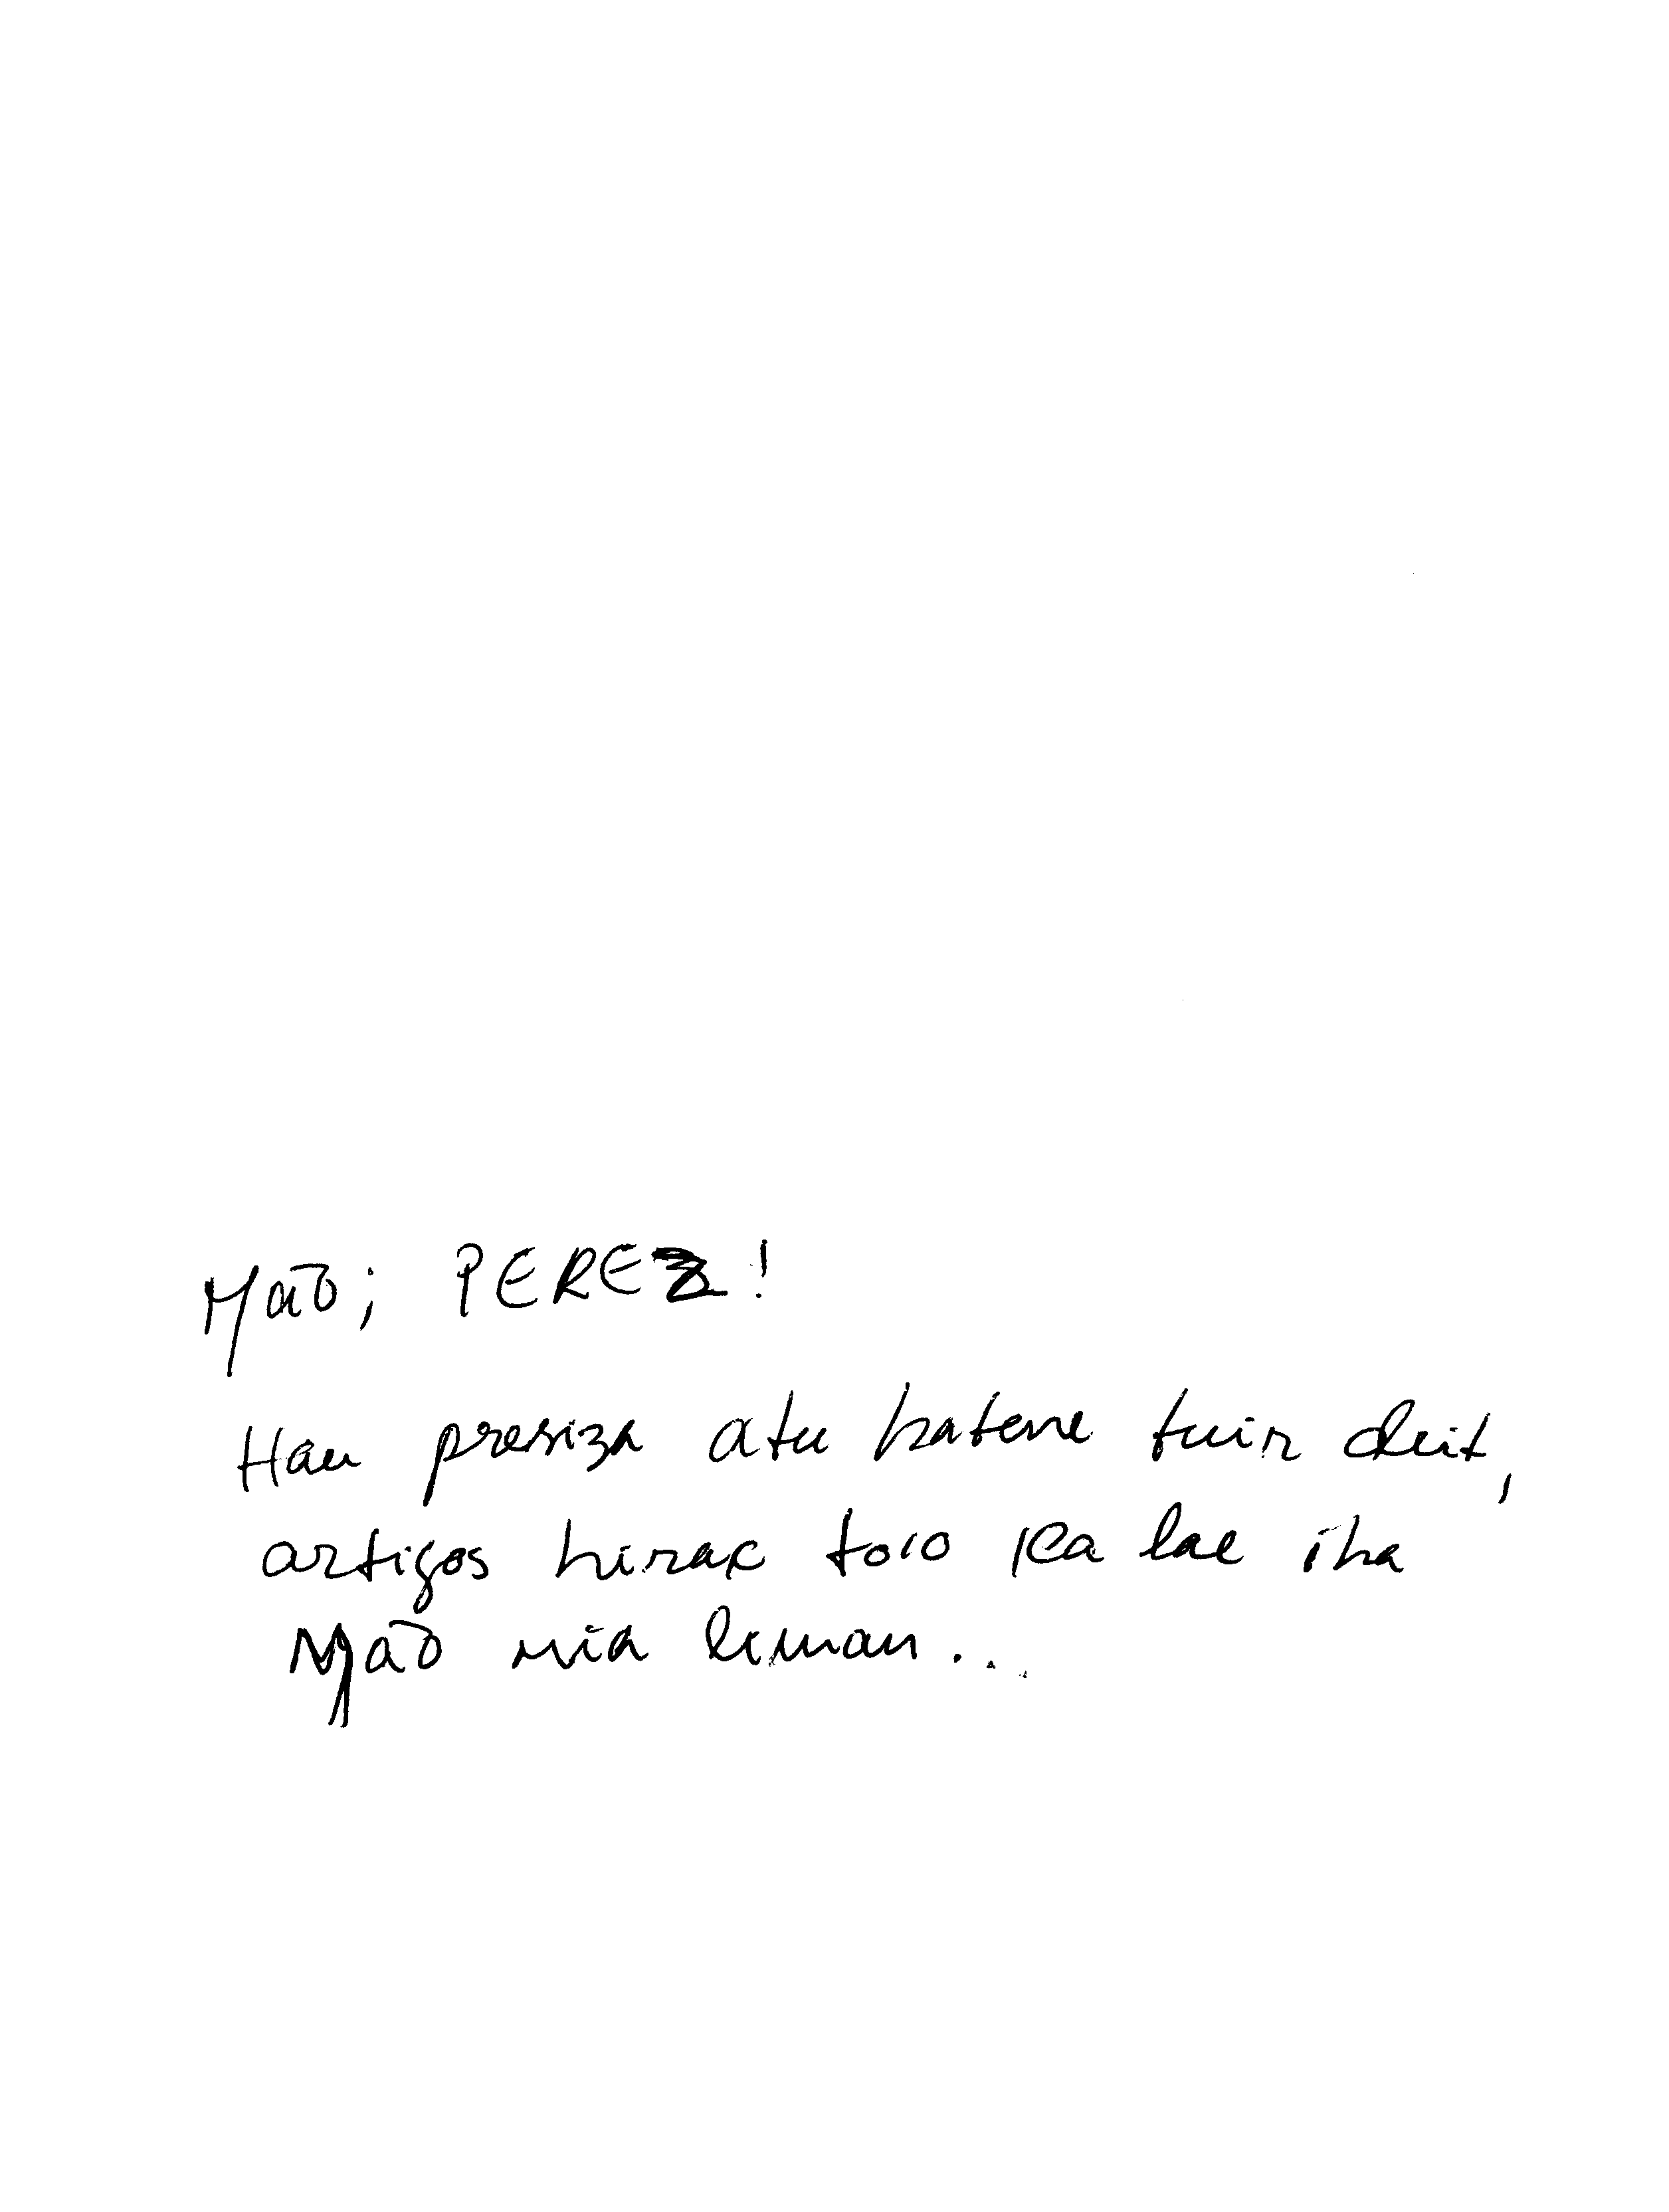 Maõ; PEREZ!
Hau presiza atu hatene tuir deit,
artigos hirak to'o ka lae iha
Maõ nia liman...